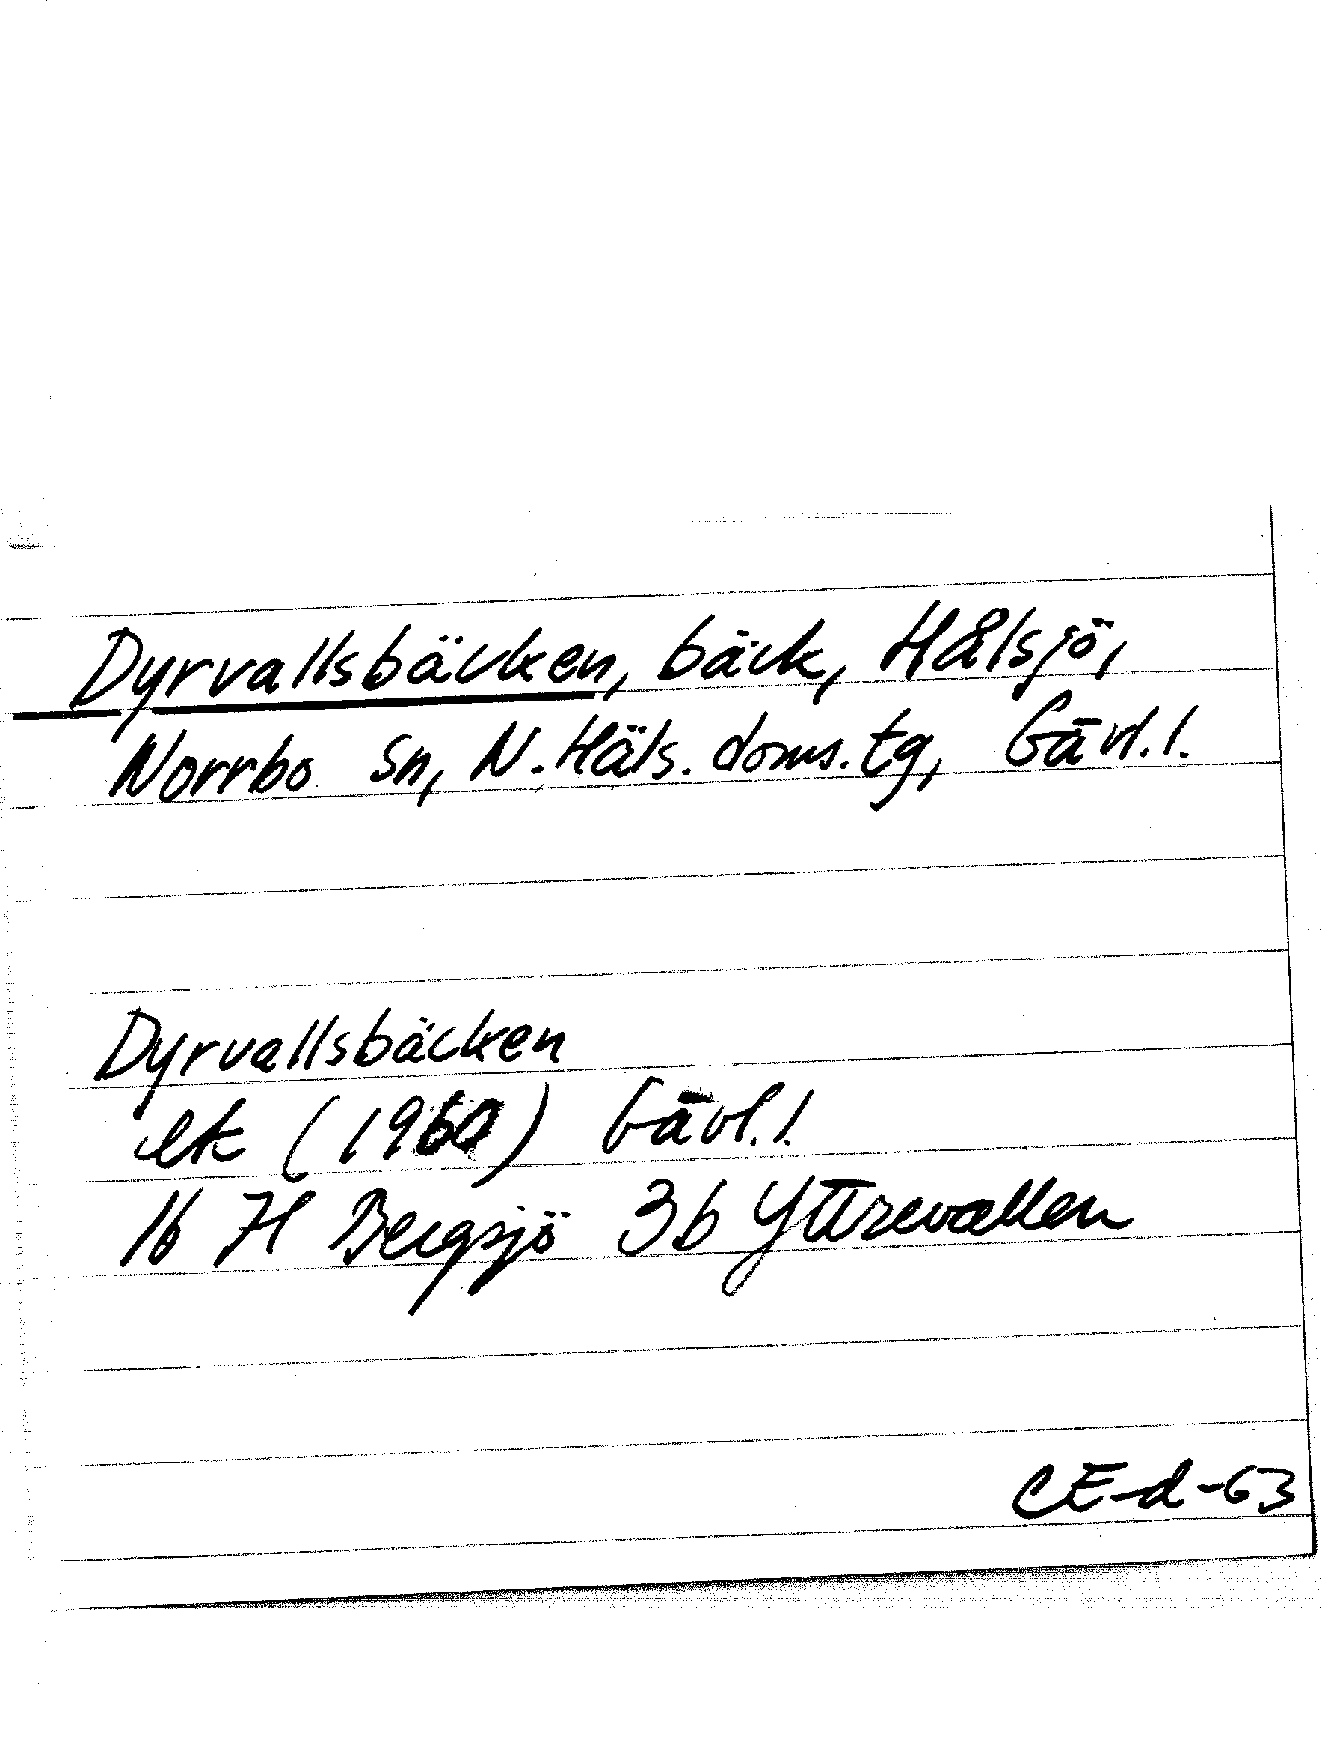 Dyrvallsbäcken, bäck, Hålsjö,
Norrbo sn, N. Häls. doms. tg, Gävl. l.
Dyrvallsbäcken
ek (1960) Gävl. l.
16 H Bergsjö 3b Yttrevallen
CE-d-63